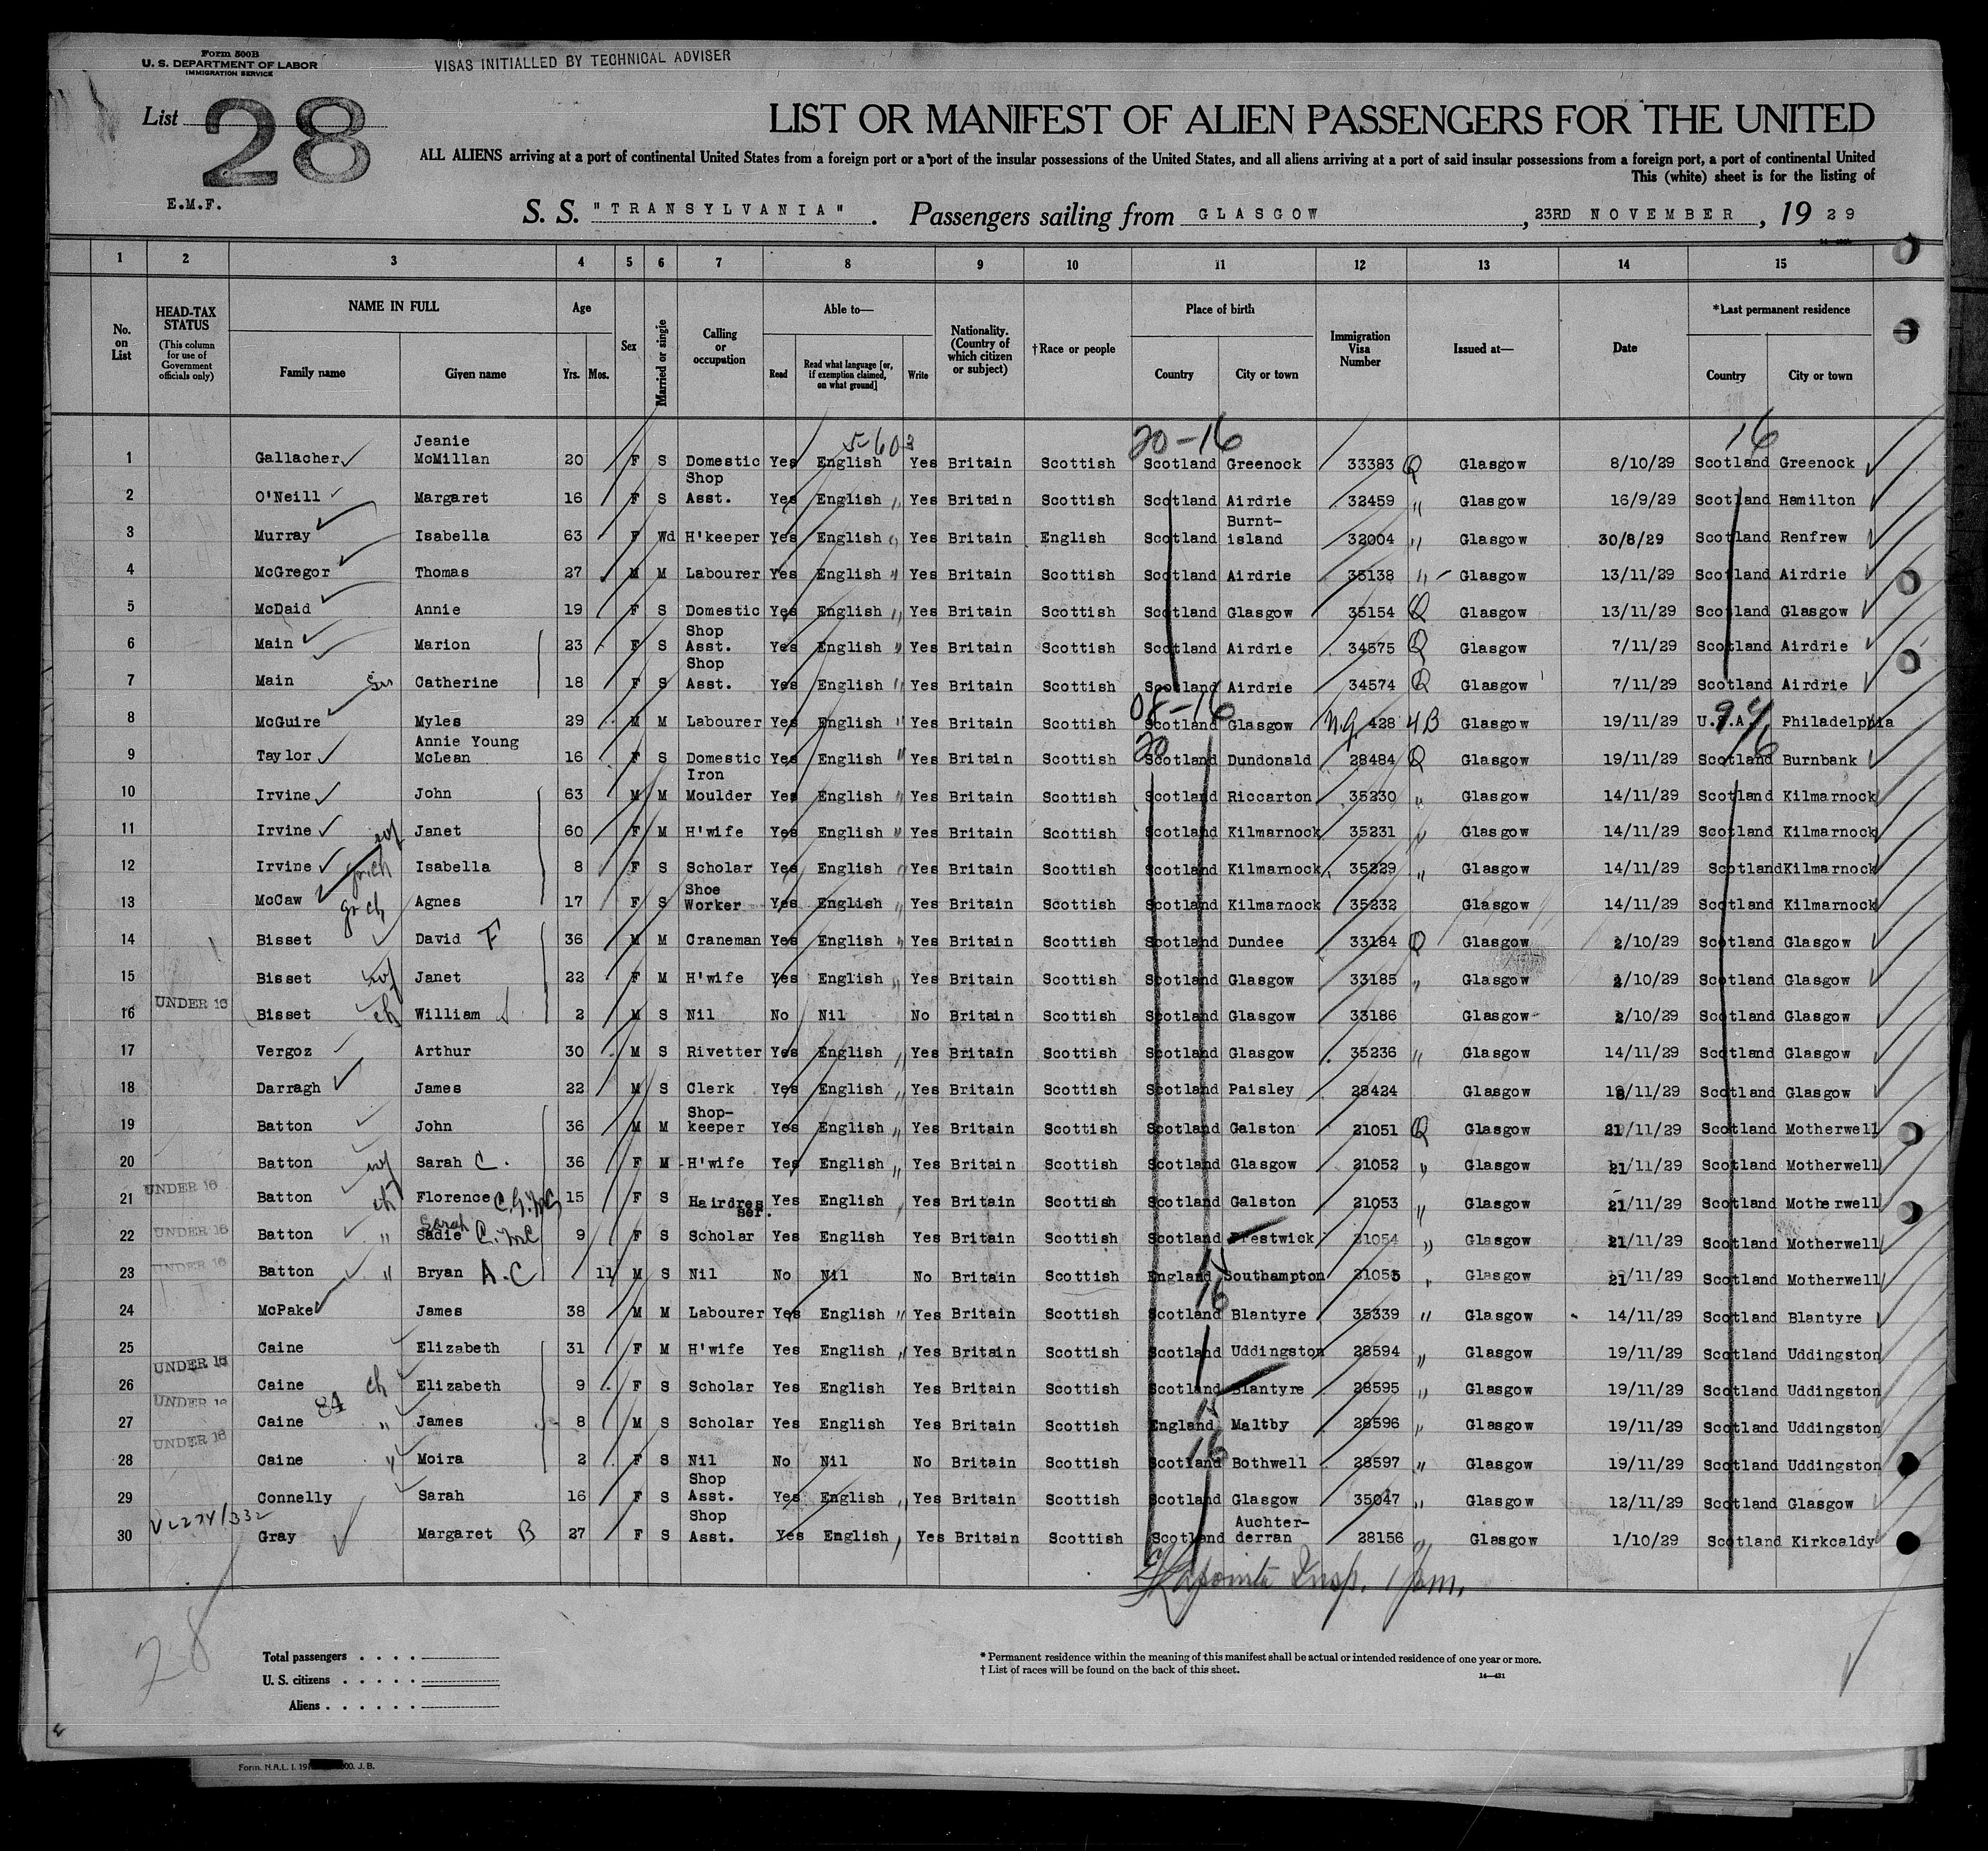 Form 500B
U. S. DEPARTMENT OF LABOR
IMMIGRATION SERVICE
VISAS INITIALLED BY TECHNICAL ADVISER
List 28
LIST OR MANIFEST OF ALIEN PASSENGERS FOR THE UNITED
ALL ALIENS arriving at a port of continental United States from a foreign port or a port of the insular possessions of the United States, and all aliens arriving at a port of said insular possessions from a foreign port, a port of continental United
This (white) sheet is for the listing of
E.M.F.
S. S. "TRANSYLVANIA". Passengers sailing from GLASGOW, 23RD NOVEMBER, 19 29
1 2 3 4 5 6 7 8 9 10 11 12 13 14 15
No. on List
HEAD-TAX STATUS (This column for use of Government officials only)
NAME IN FULL
Family name Given name
Age
Yrs. Mos.
Sex
Married or single
Calling or occupation
Able to—
Read Read what language [or, if exemption claimed, on what ground] Write
Nationality. (Country of which citizen or subject)
†Race or people
Place of birth
Country City or town
Immigration Visa Number
Issued at—
Date
*Last permanent residence
Country City or town
5-603 20-16 16
1 Gallacher Jeanie McMillan 20 F S Domestic Yes English Yes Britain Scottish Scotland Greenock 33383 Q Glasgow 8/10/29 Scotland Greenock
2 O'Neill Margaret 16 F S Shop Asst. Yes English " Yes Britain Scottish Scotland Airdrie 32459 " Glasgow 16/9/29 Scotland Hamilton
3 Murray Isabella 63 F Wd H'keeper Yes English " Yes Britain English Scotland Burnt-island 32004 " Glasgow 30/8/29 Scotland Renfrew
4 McGregor Thomas 27 M M Labourer Yes English " Yes Britain Scottish Scotland Airdrie 35138 " Glasgow 13/11/29 Scotland Airdrie
5 McDaid Annie 19 F S Domestic Yes English " Yes Britain Scottish Scotland Glasgow 35154 Q Glasgow 13/11/29 Scotland Glasgow
6 Main Marion 23 F S Shop Asst. Yes English " Yes Britain Scottish Scotland Airdrie 34575 Q Glasgow 7/11/29 Scotland Airdrie
7 Main Catherine 18 F S Shop Asst. Yes English " Yes Britain Scottish Scotland Airdrie 34574 Q Glasgow 7/11/29 Scotland Airdrie
8 McGuire Myles 29 M M Labourer Yes English " Yes Britain Scottish Scotland Glasgow N.Q. 428 4B Glasgow 19/11/29 U.S.A. Philadelphia
9 Taylor Annie Young McLean 16 F S Domestic Yes English " Yes Britain Scottish 20 Scotland Dundonald 28484 Q Glasgow 19/11/29 16 Scotland Burnbank
10 Irvine John 63 M M Iron Moulder Yes English " Yes Britain Scottish Scotland Riccarton 35230 " Glasgow 14/11/29 Scotland Kilmarnock
11 Irvine wf Janet 60 F M H'wife Yes English " Yes Britain Scottish Scotland Kilmarnock 35231 " Glasgow 14/11/29 Scotland Kilmarnock
12 Irvine gr.ch Isabella 8 F S Scholar Yes English " Yes Britain Scottish Scotland Kilmarnock 35229 " Glasgow 14/11/29 Scotland Kilmarnock
13 McCaw gr ch Agnes 17 F S Shoe Worker Yes English " Yes Britain Scottish Scotland Kilmarnock 35232 Glasgow 14/11/29 Scotland Kilmarnock
14 Bisset David F 36 M M Craneman Yes English " Yes Britain Scottish Scotland Dundee 33184 Q Glasgow 2/10/29 Scotland Glasgow
15 Bisset wf Janet 22 F M H'wife Yes English " Yes Britain Scottish Scotland Glasgow 33185 " Glasgow 2/10/29 Scotland Glasgow
16 UNDER 16 Bisset ch William 2 M S Nil No Nil No Britain Scottish Scotland Glasgow 33186 Glasgow 2/10/29 Scotland Glasgow
17 Vergoz Arthur 30 M S Rivetter Yes English " Yes Britain Scottish Scotland Glasgow 35236 " Glasgow 14/11/29 Scotland Glasgow
18 Darragh James 22 M S Clerk Yes English " Yes Britain Scottish Scotland Paisley 28424 Glasgow 18/11/29 Scotland Glasgow
19 Batton John 36 M M Shop-keeper Yes English " Yes Britain Scottish Scotland Galston 21051 Q Glasgow 21/11/29 Scotland Motherwell
20 Batton wf Sarah C. 36 F M H'wife Yes English " Yes Britain Scottish Scotland Glasgow 21052 " Glasgow 21/11/29 Scotland Motherwell
21 UNDER 16 Batton ch Florence C.G.McC 15 F S Hairdresser. Yes English Yes Britain Scottish Scotland Galston 21053 " Glasgow 21/11/29 Scotland Motherwell
22 UNDER 16 Batton " Sarah Sadie C. McC 9 F S Scholar Yes English Yes Britain Scottish Scotland Prestwick 21054 " Glasgow 21/11/29 Scotland Motherwell
23 UNDER 16 Batton " Bryan A.C 11 M S Nil No Nil No Britain Scottish England Southampton 21055 " Glasgow 21/11/29 Scotland Motherwell
24 McPake James 38 M M Labourer Yes English " Yes Britain Scottish 16 Scotland Blantyre 35339 " Glasgow 14/11/29 Scotland Blantyre
25 Caine Elizabeth 31 F M H'wife Yes English " Yes Britain Scottish Scotland Uddingston 28594 " Glasgow 19/11/29 Scotland Uddingston
26 UNDER 16 Caine ch Elizabeth 9 F S Scholar Yes English Yes Britain Scottish Scotland Blantyre 28595 " Glasgow 19/11/29 Scotland Uddingston
27 UNDER 16 Caine 84 " James 8 M S Scholar Yes English Yes Britain Scottish England Maltby 28596 " Glasgow 19/11/29 Scotland Uddingston
28 UNDER 16 Caine " Moira 2 F S Nil No Nil No Britain Scottish 16 Scotland Bothwell 28597 " Glasgow 19/11/29 Scotland Uddingston
29 Connelly Sarah 16 F S Shop Asst. Yes English " Yes Britain Scottish Scotland Glasgow 35047 " Glasgow 12/11/29 Scotland Glasgow
30 Gray Margaret B 27 F S Shop Asst. Yes English Yes Britain Scottish Scotland Auchter-derran 28156 " Glasgow 1/10/29 Scotland Kirkcaldy
28
Total passengers . . . .
U. S. citizens . . . . .
Aliens . . . . . .
* Permanent residence within the meaning of this manifest shall be actual or intended residence of one year or more.
† List of races will be found on the back of this sheet.
14—431